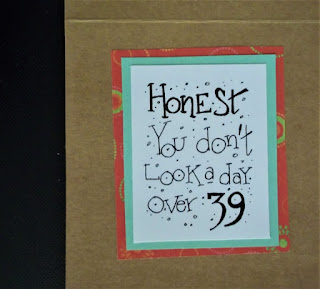 Honest
You don't
Look a day
over 39